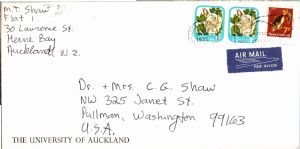 M.T. Shaw
Flat 1
30 Lawrence St.
Herne Bay
Auckland N.Z.
AIR MAIL
PAR AVION
Dr. + Mrs. C. G. Shaw
NW 325 Janet St.
Pullman, Washington 99163
U.S.A.
THE UNIVERSITY OF AUCKLAND